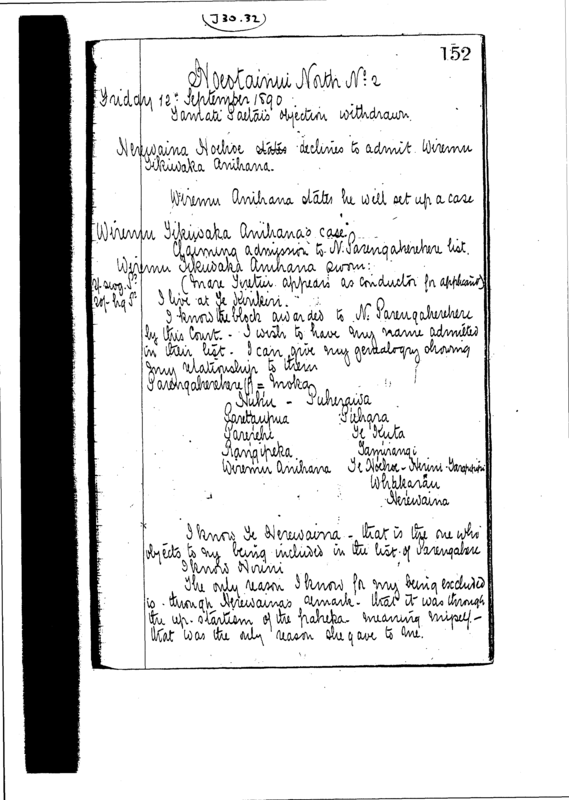 J30.32
152
Hoeotainui North No 2
Friday 12th September 1890
objection withdrawn.
Nerewaina Hoehoe states declines to admit Wiremu
Tikiwaka Anihana.
Wiremu Anihana states he will set up a case
Wiremu Tikiwaka Anihana's case.
Claiming admission to N. Parengaherehere list.
Wiremu Tikiwaka Anihana sworn:
(Mare Teretiu appears as conductor for applicant)
I live at Te Kerikeri.
I know the block awarded to N. Parengaherehere
by this Court. - I wish to have my name admitted
in their list. - I can give my genealogy showing
my relationship to them
Parengaherehere (f) = Moka
Huhu - Puherawa
Puhara
Te Kuta
Rangipeka Tamirangi
Wiremu Anihana Te Hoehoe - Nerini -
Whakarau
Nerewaina
I know Te Nerewaina - that is the one who
objects to my being included in the list of Parengahere
I know Nerini
The only reason I know for my being excluded
is through Nerewaina's remark - that it was through
the up-startism of the pakeha meaning myself -
that was the only reason she gave to me.